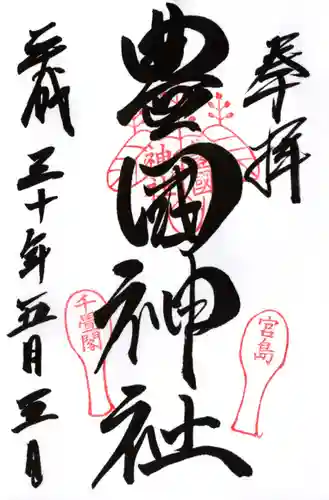 奉拝
豊國神社
平成三十年五月五日
宮島
千畳閣